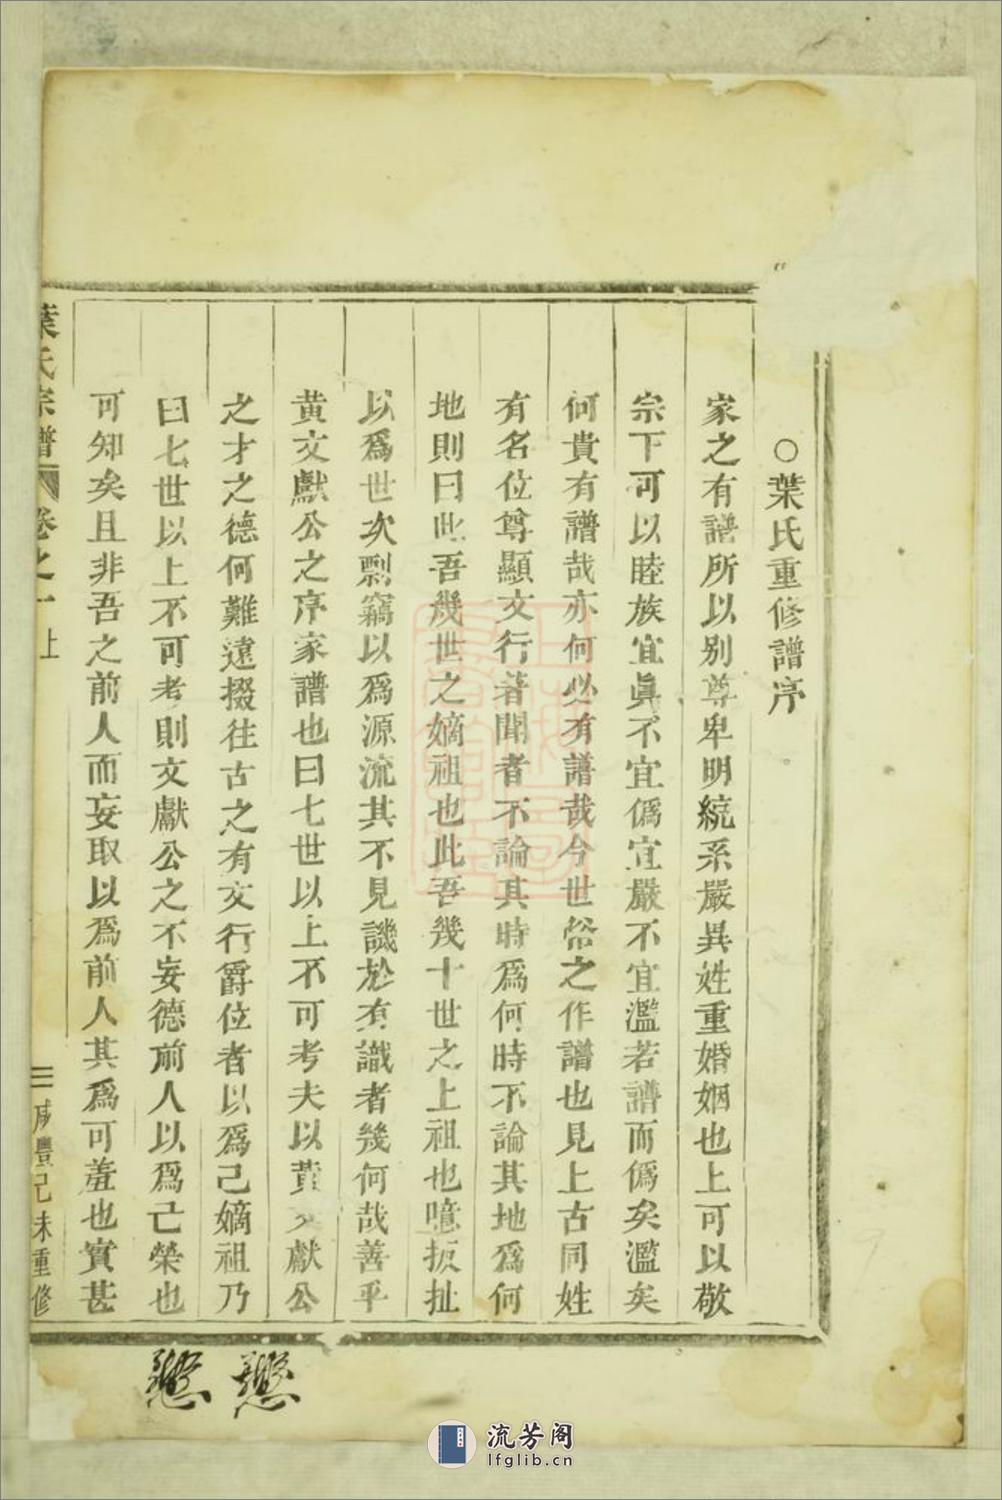 ○葉氏重修譜序
家之有譜所以别尊卑明統系嚴異姓重婚姻也上可以敬
宗下可以睦族宜眞不宜僞宜嚴不宜濫若譜而僞矣濫矣
何貴有譜哉亦何必有譜哉今世俗之作譜也見上古同姓
有名位尊顯文行著聞者不論其時爲何時不論其地爲何
地則曰此吾幾世之嫡祖也此吾幾十世之上祖也噫扳扯
以爲世次剽竊以爲源流其不見譏於有識者幾何哉善乎
黄文獻公之序家譜也曰七世以上不可考夫以黄文獻公
之才之德何難遠掇往古之有文行爵位者以爲己嫡祖乃
曰七世以上不可考則文獻公之不妄德前人以爲己榮也
可知矣且非吾之前人而妄取以爲前人其爲可羞也實甚
葉氏宗譜 卷之一上 三 咸豐己未重修
流芳阁
lfglib.cn